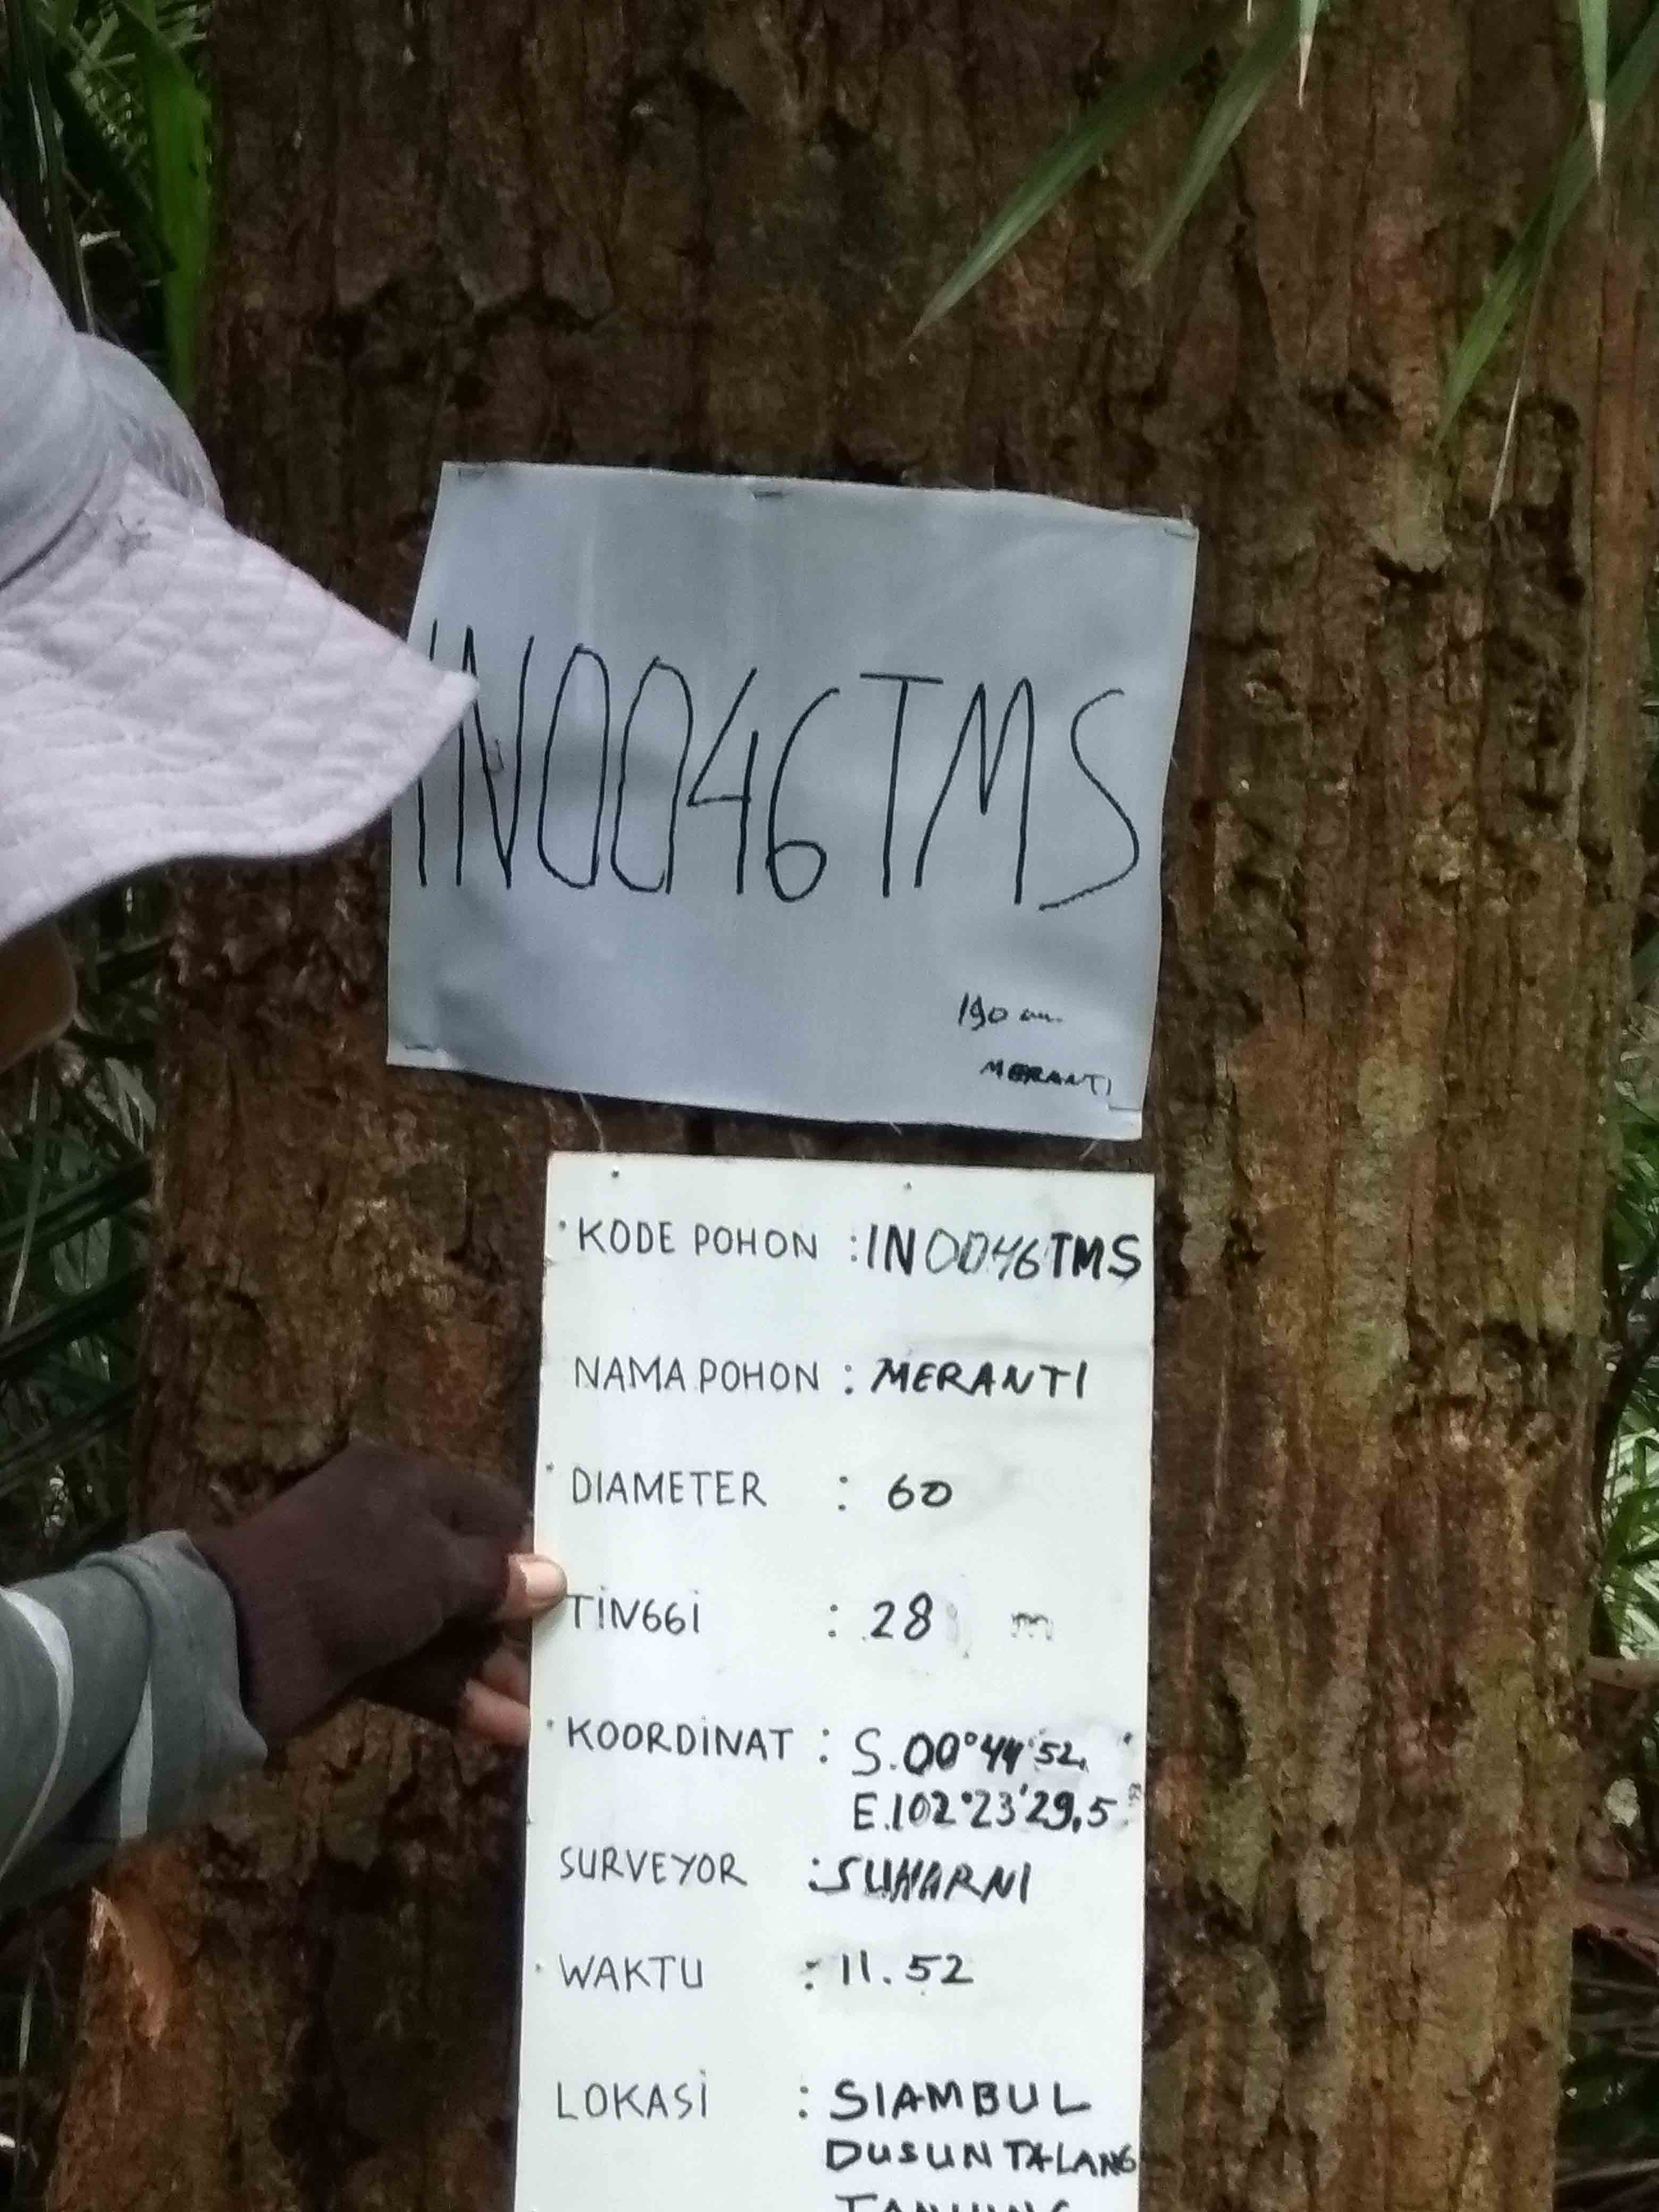 IN0046TMS
190 cm
MERANTI
KODE POHON : IN0046TMS
NAMA POHON : MERANTI
DIAMETER : 60
TINGGI : 28 m
KOORDINAT : S.00°44'52,
E.102°23'29,5
SURVEYOR : SUHARNI
WAKTU : 11.52
LOKASI : SIAMBUL
DUSUN TALANG